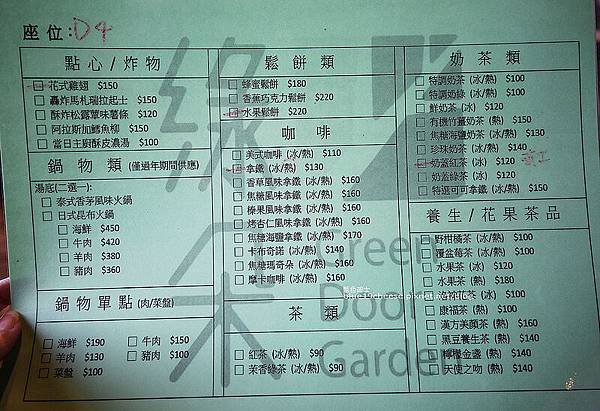 座位:D4
點心/炸物
花式雞翅 $150
轟炸馬札瑞拉起士 $150
酥炸松露蕈味薯條 $120
阿拉斯加鱈魚柳 $150
當日主廚酥皮濃湯 $100
鍋物類 (僅過年期間供應)
湯底(二選一):
泰式香茅風味火鍋
日式昆布火鍋
海鮮 $450
牛肉 $420
羊肉 $380
豬肉 $360
鍋物單點 (肉/菜盤)
海鮮 $190 牛肉 $150
羊肉 $130 豬肉 $100
菜盤 $100
鬆餅類
蜂蜜鬆餅 $180
香蕉巧克力鬆餅 $220
水果鬆餅 $220
咖啡
美式咖啡 (冰/熱) $110
拿鐵 (冰/熱) $130
香草風味拿鐵 (冰/熱) $160
焦糖風味拿鐵 (冰/熱) $160
榛果風味拿鐵 (冰/熱) $160
烤杏仁風味拿鐵 (冰/熱) $160
焦糖海鹽拿鐵 (冰/熱) $170
卡布奇諾 (冰/熱) $140
焦糖瑪奇朵 (冰/熱) $160
摩卡咖啡 (冰/熱) $160
茶類
紅茶 (冰/熱) $90
茉香綠茶 (冰/熱) $90
奶茶類
特調奶茶 (冰/熱) $100
特調奶綠 (冰/熱) $100
鮮奶茶 (冰) $120
有機竹薑奶茶 (熱) $150
焦糖海鹽奶茶 (冰/熱) $130
珍珠奶茶 (冰/熱) $140
奶蓋紅茶 (冰) $120
奶蓋綠茶 (冰) $120
特逗可可拿鐵 (冰/熱) $150
養生/花果茶品
野柑橘茶 (冰/熱) $100
覆盆莓茶 (冰/熱) $100
水果茶 (冰) $120
水果茶 (熱) $180
(冰/熱) $100
康福茶 (熱) $100
漢方美顏茶 (熱) $160
黑豆養生茶 (熱) $140
檸檬金盞 (熱) $140
天使之吻 (熱) $140
綠
朵
Green
Door
Garden